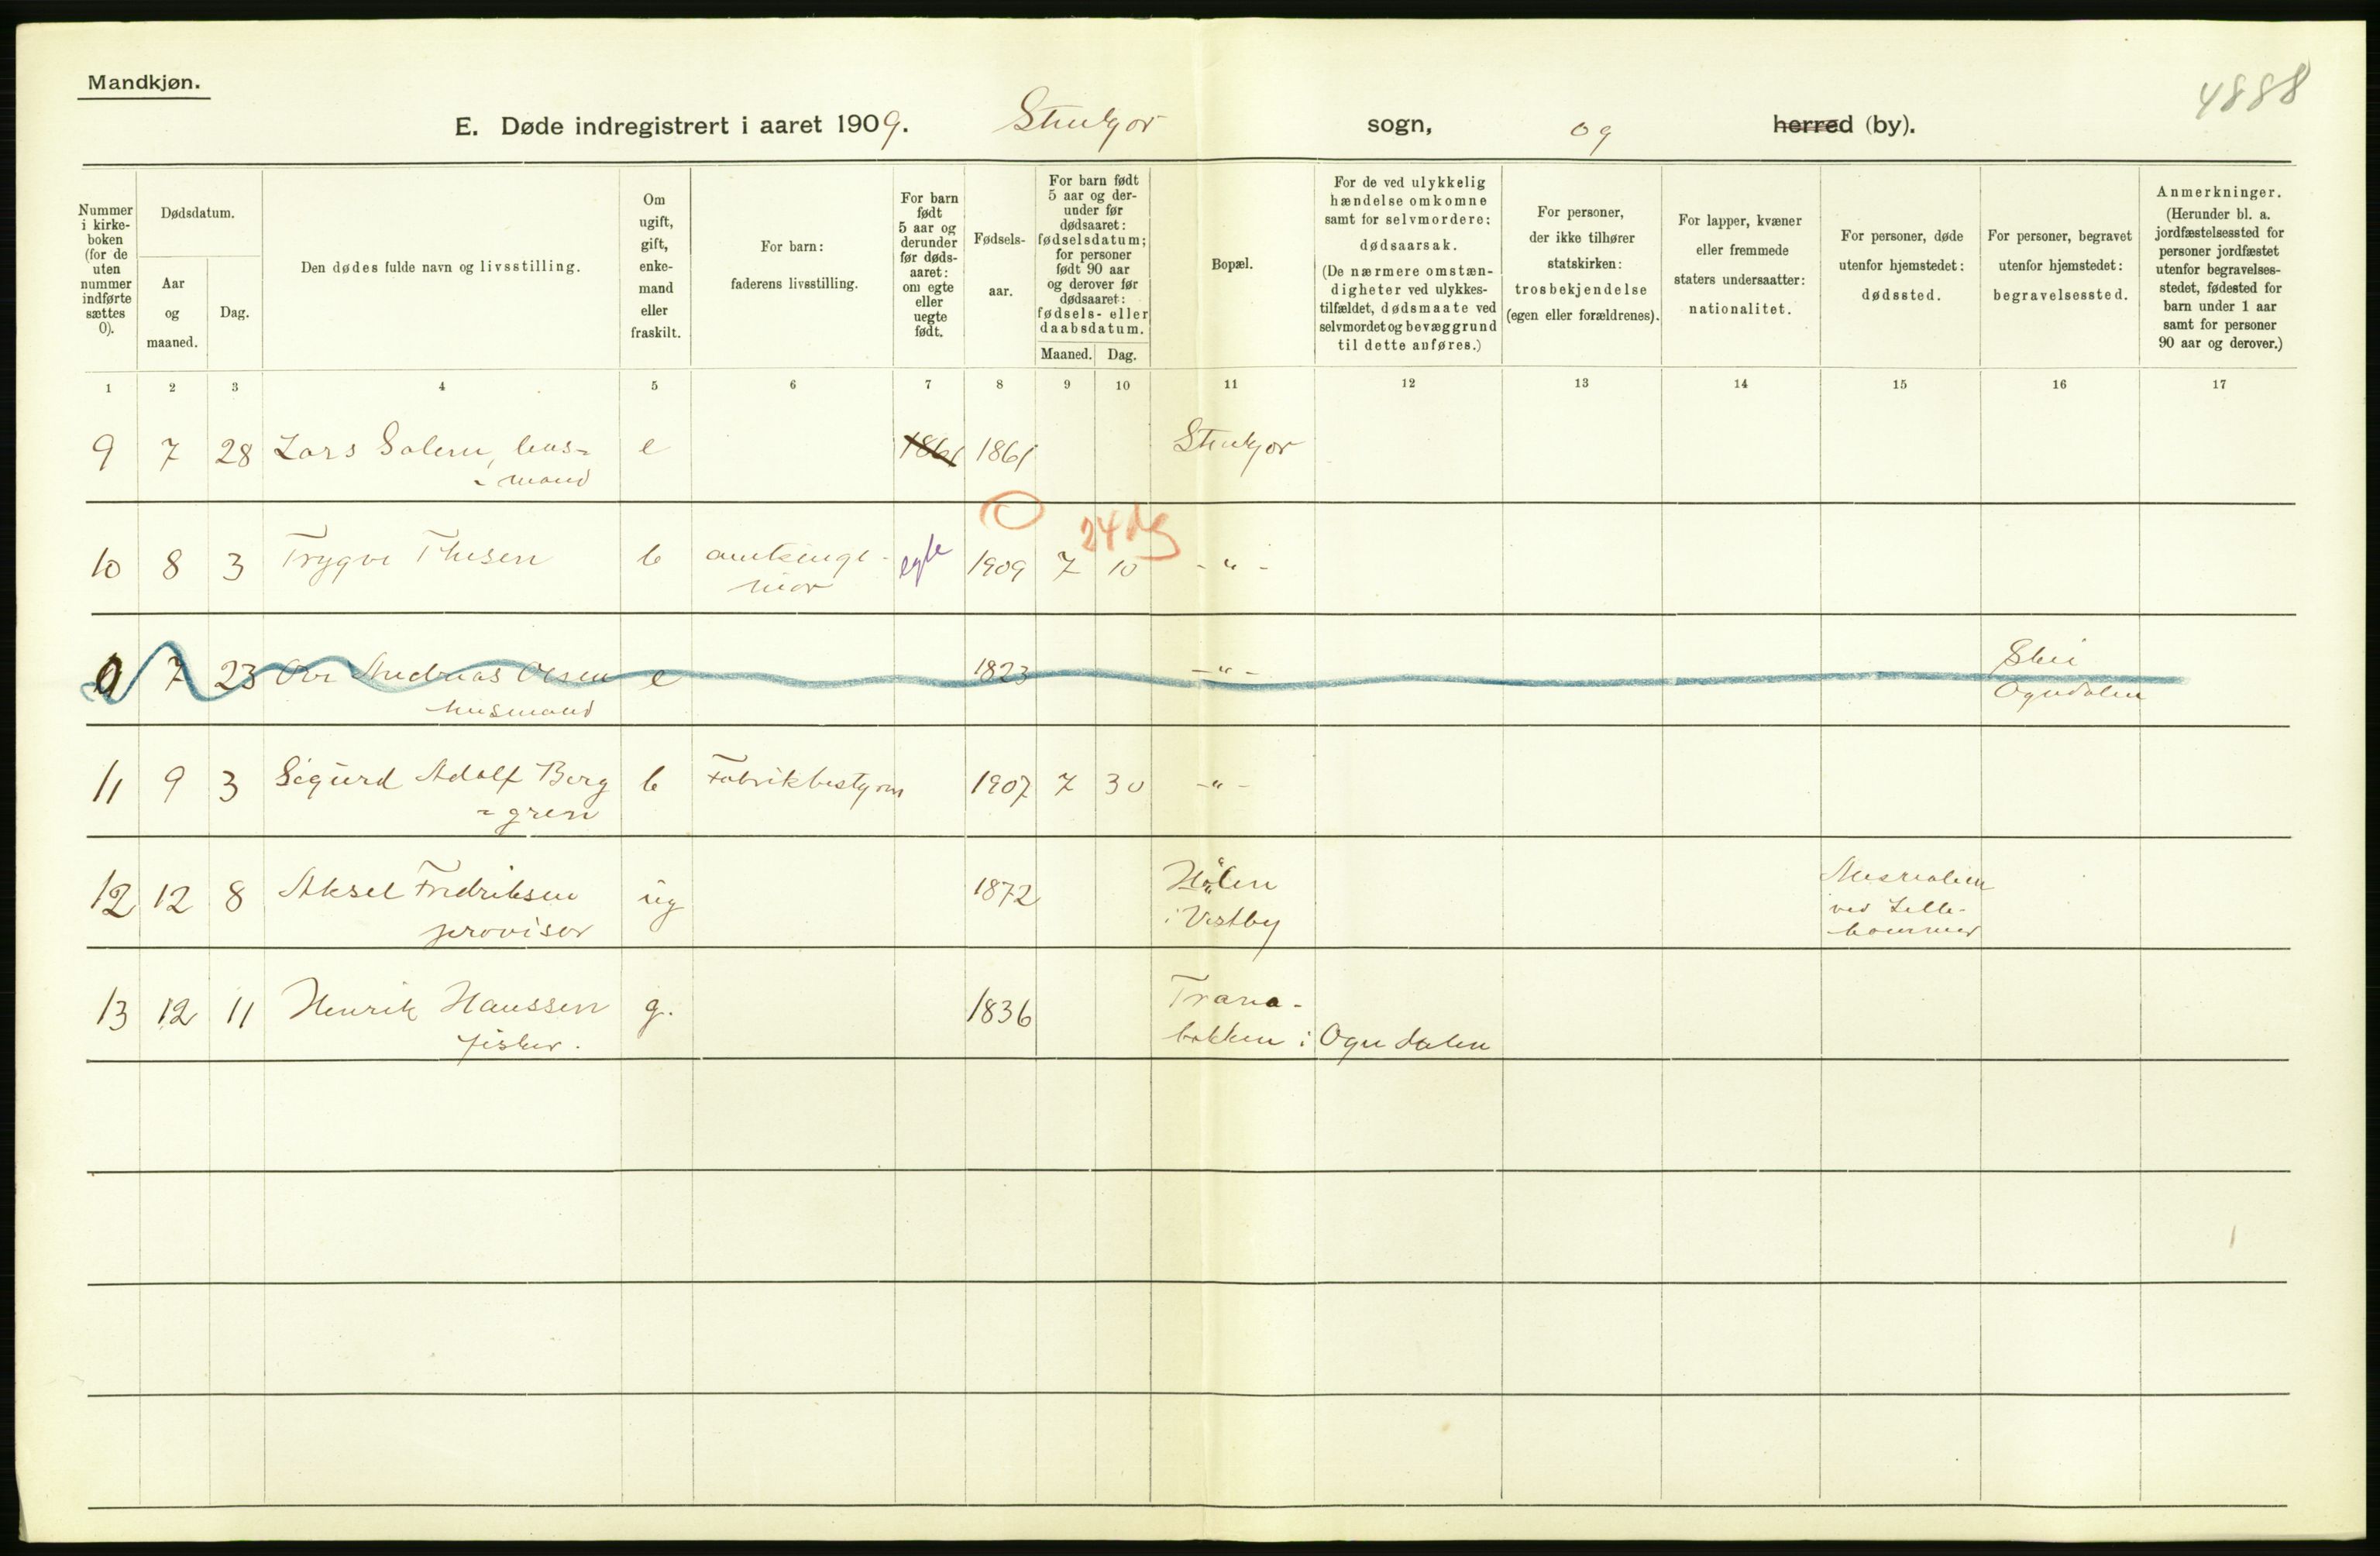 Mandkjøn.
4888
E. Døde indregistrert i aaret 1909. Stenkjær sogn, og herred (by).
Nummer i kirke-boken (for de uten nummer indførte sættes 0).
Dødsdatum.
Aar og maaned.
Dag.
Den dødes fulde navn og livsstilling.
Om ugift, gift, enke-mand eller fraskilt.
For barn: faderens livsstilling.
For barn født 5 aar og derunder før døds-aaret: om egte eller uegte født.
Fødsels-aar.
For barn født 5 aar og der-under før dødsaaret: fødselsdatum; for personer født 90 aar og derover før dødsaaret: fødsels- eller daabsdatum.
Maaned. Dag.
Bopæl.
For de ved ulykkelig hændelse omkomne samt for selvmordere: dødsaarsak. (De nærmere omstæn-digheter ved ulykkes-tilfældet, dødsmaate ved selvmordet og bevæggrund til dette anføres.)
For personer, der ikke tilhører statskirken: trosbekjendelse (egen eller forældrenes).
For lapper, kvæner eller fremmede staters undersaatter: nationalitet.
For personer, døde utenfor hjemstedet: dødssted.
For personer, begravet utenfor hjemstedet: begravelsessted.
Anmerkninger. (Herunder bl. a. jordfæstelsessted for personer jordfæstet utenfor begravelses-stedet, fødested for barn under 1 aar samt for personer 90 aar og derover.)
1 2 3 4 5 6 7 8 9 10 11 12 13 14 15 16 17
9 7 28 Lars Salem, hus= e 1861 1861 Stenkjær
=mand
24 dg
10 8 3 Trygve Thesen b amtsinge- egte 1909 7 10 - " -
niør
0 7 23 Ole Andreas Olsen e 1823 - " - Skei
husmand Ogndalen
11 9 3 Sigurd Adolf Berg b Fabrikbestyrer 1907 7 30 - " -
=gren
12 12 8 Aksel Fredriksen ug 1872 Hølen Mesnalien
provisor i Vestby ved Lille-
hammer
13 12 11 Henrik Hanssen g. 1836 Trana-
fisker. bakken i Ogndalen